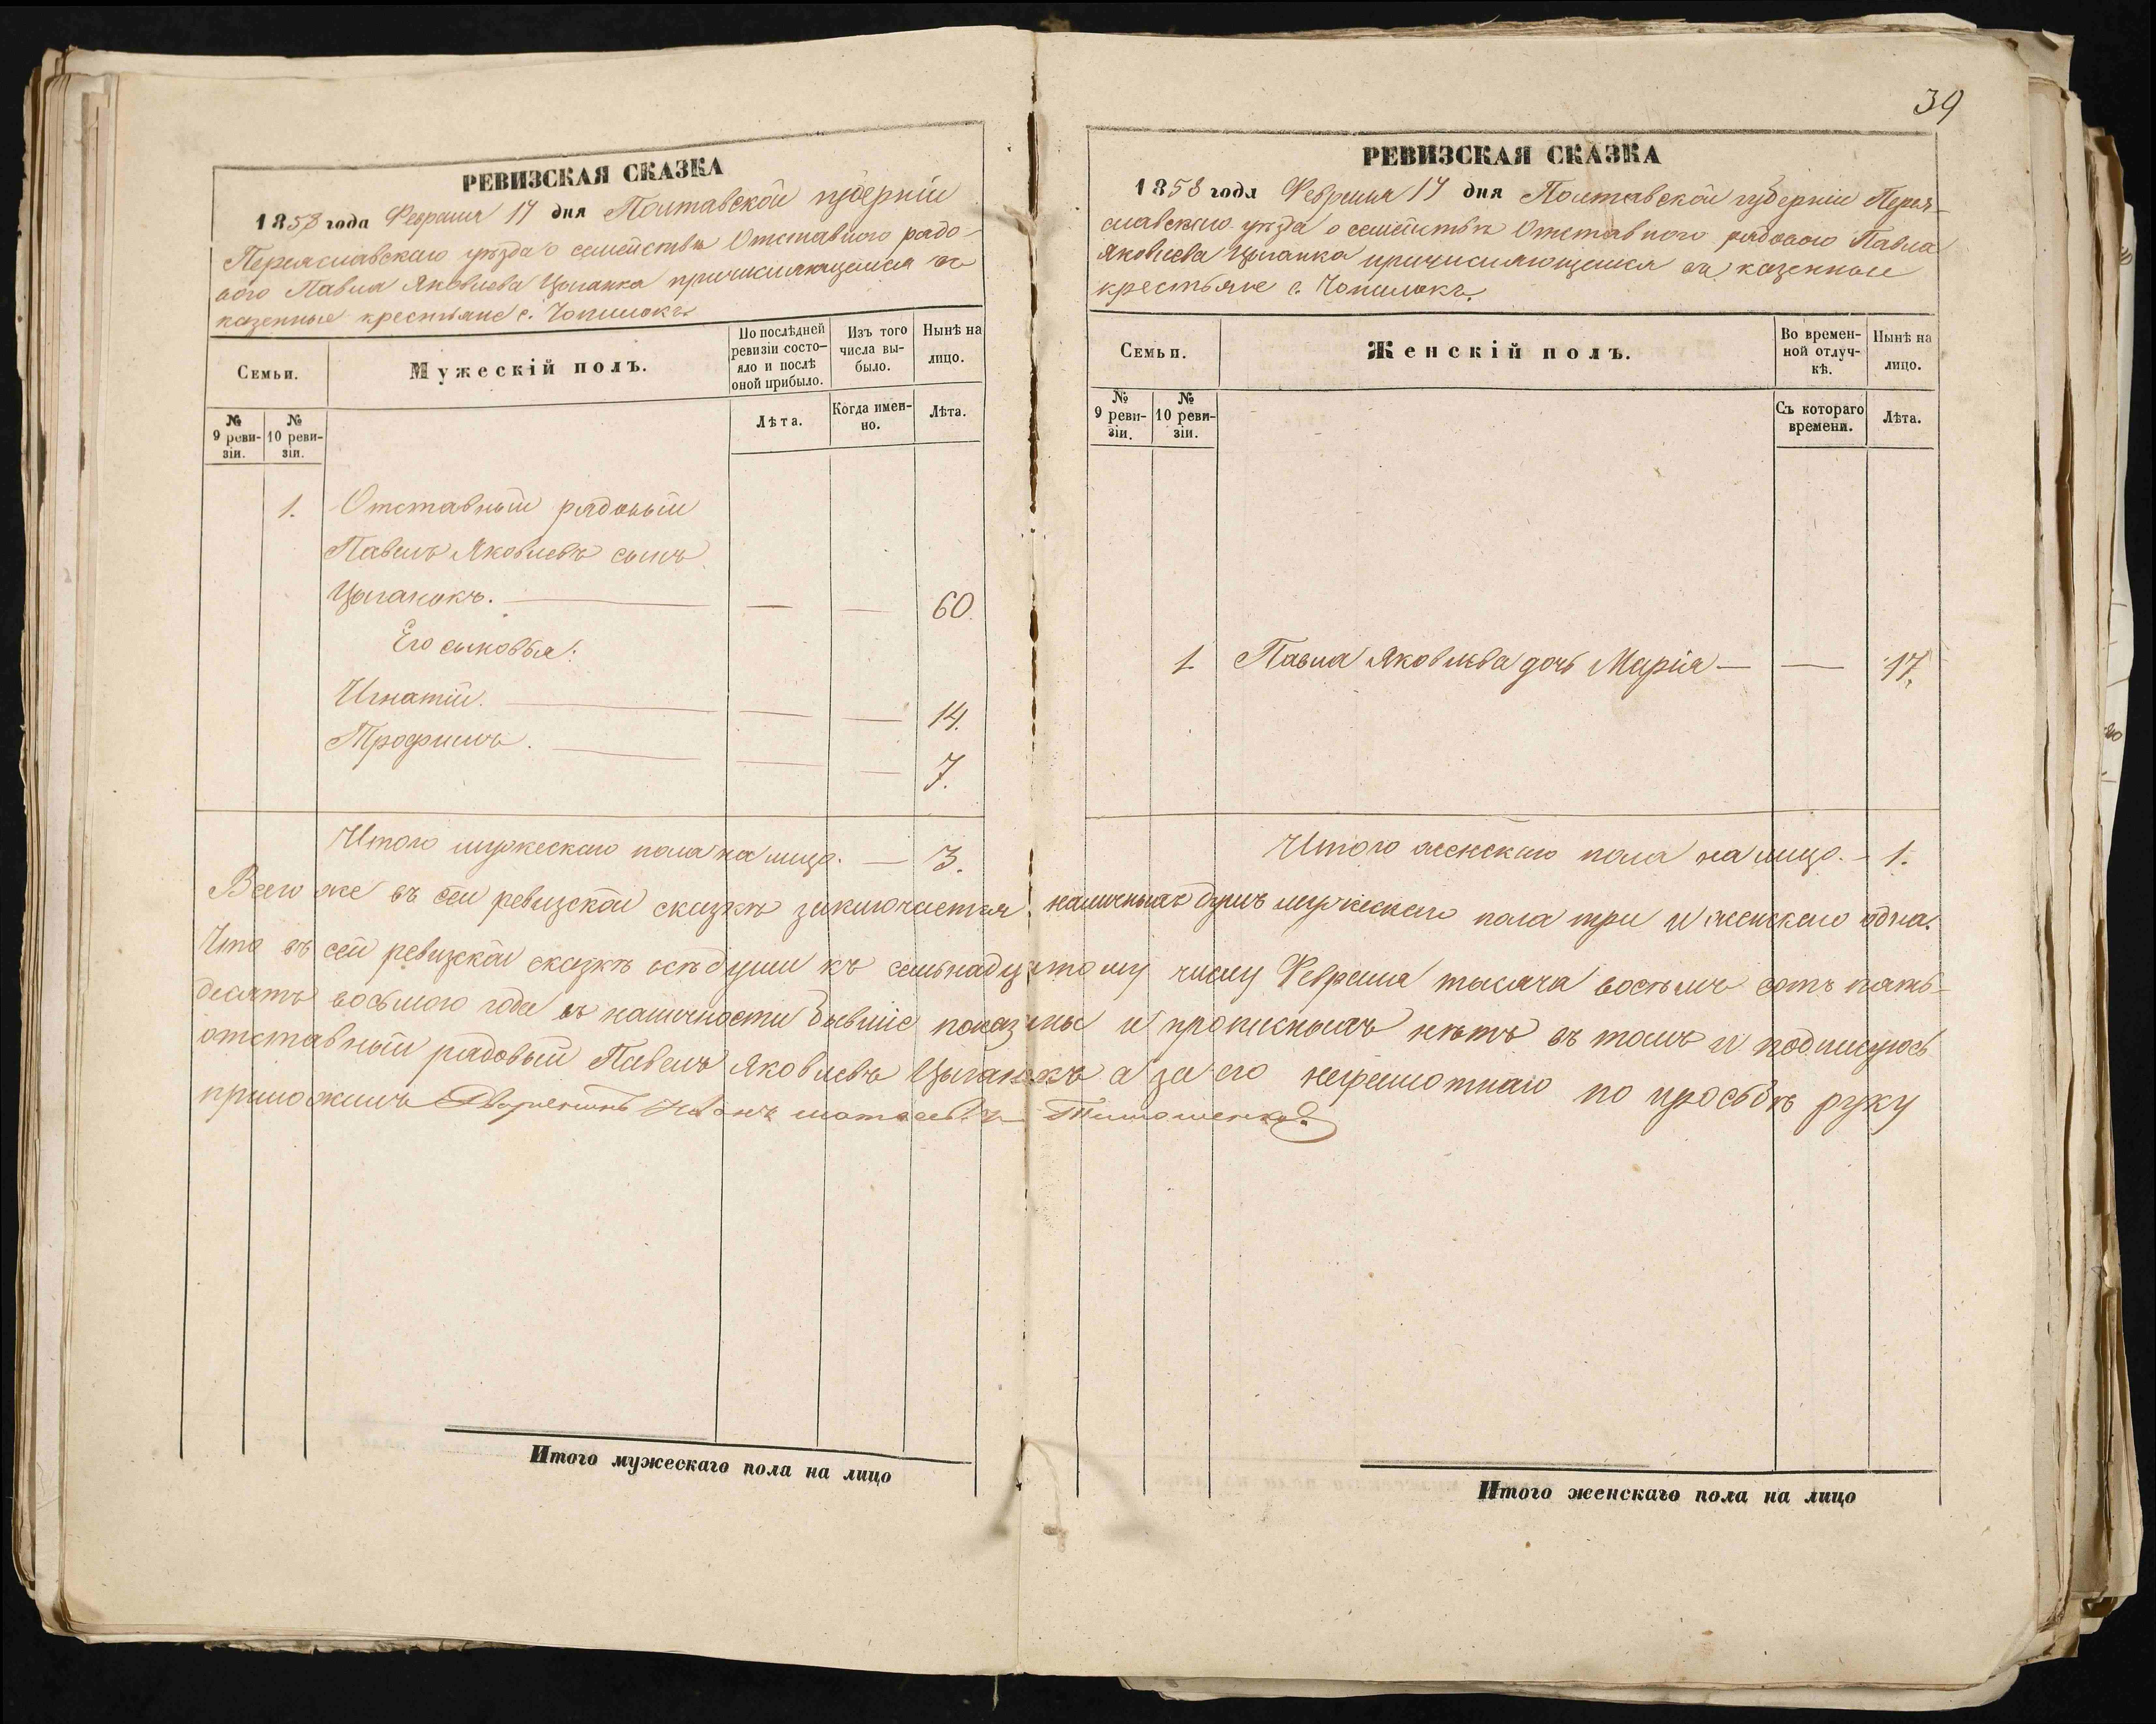 РЕВИЗСКАЯ СКАЗКА
1858 года Февраля 17 дня Полтавской губерніи
Переяславскаго уѣзда о семействѣ Отставного рядо-
вого Павла Яковлева Цыганка причисляющемся въ
казенные крестьяне с. Чопилокъ
Семьи.
Мужескій полъ.
По послѣдней ревизіи состо-яло и послѣ оной прибыло.
Изъ того числа вы-было.
Нынѣ на лицо.
№ 9 реви-зіи.
№ 10 реви-зіи.
Лѣта.
Когда имен-но.
Лѣта.
1. Отставный рядовый
Павелъ Яковлевъ сынъ
Цыганокъ. — — — 60.
Его сыновья:
Игнатій. — — — 14.
Трофимъ. — — — 7.
Итого мужескаго пола на лицо. — 3.
39
РЕВИЗСКАЯ СКАЗКА
1858 года Февраля 17 дня Полтавской губерніи Перея-
славскаго уѣзда о семействѣ Отставного рядового Павла
Яковлева Цыганка причисляющемся въ казенные
крестьяне с. Чопилокъ.
Семьи.
Женскій полъ.
Во времен-ной отлуч-кѣ.
Нынѣ на лицо.
№ 9 реви-зіи.
№ 10 реви-зіи.
Съ котораго времени.
Лѣта.
1 Павла Яковлева дочь Марія — — 17.
Итого женскаго пола на лицо. - 1.
Всего же въ сей ревизской сказкѣ заключается наличныхъ душъ мужескаго пола три и женскаго одна.
Что въ сей ревизской сказкѣ всѣ души къ семьнадцятому числу Февраля тысяча восемь сотъ пять-
десятъ восьмого года въ наличности бывшіе показаны и прописныхъ нѣтъ въ томъ и подписуюсь
отставный рядовый Павелъ Яковлевъ Цыганокъ а за его неграмотнаго по просьбѣ руку
приложилъ Дворянинъ Иванъ Матвеевъ Тимошенко.
Итого мужескаго пола на лицо
Итого женскаго пола на лицо